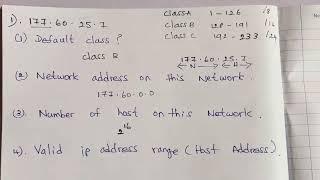 1). 177.60.25.7
Class A 1 - 126 /8
Class B 128 - 191 /16
Class C 192 - 233 /24
(1) Default class ?
Class B
177.60.25.7
N H
(2) Network address on this Network.
177.60.0.0
(3). Number of host on this Network.
2^16
4). Valid ip address range (Host Address).